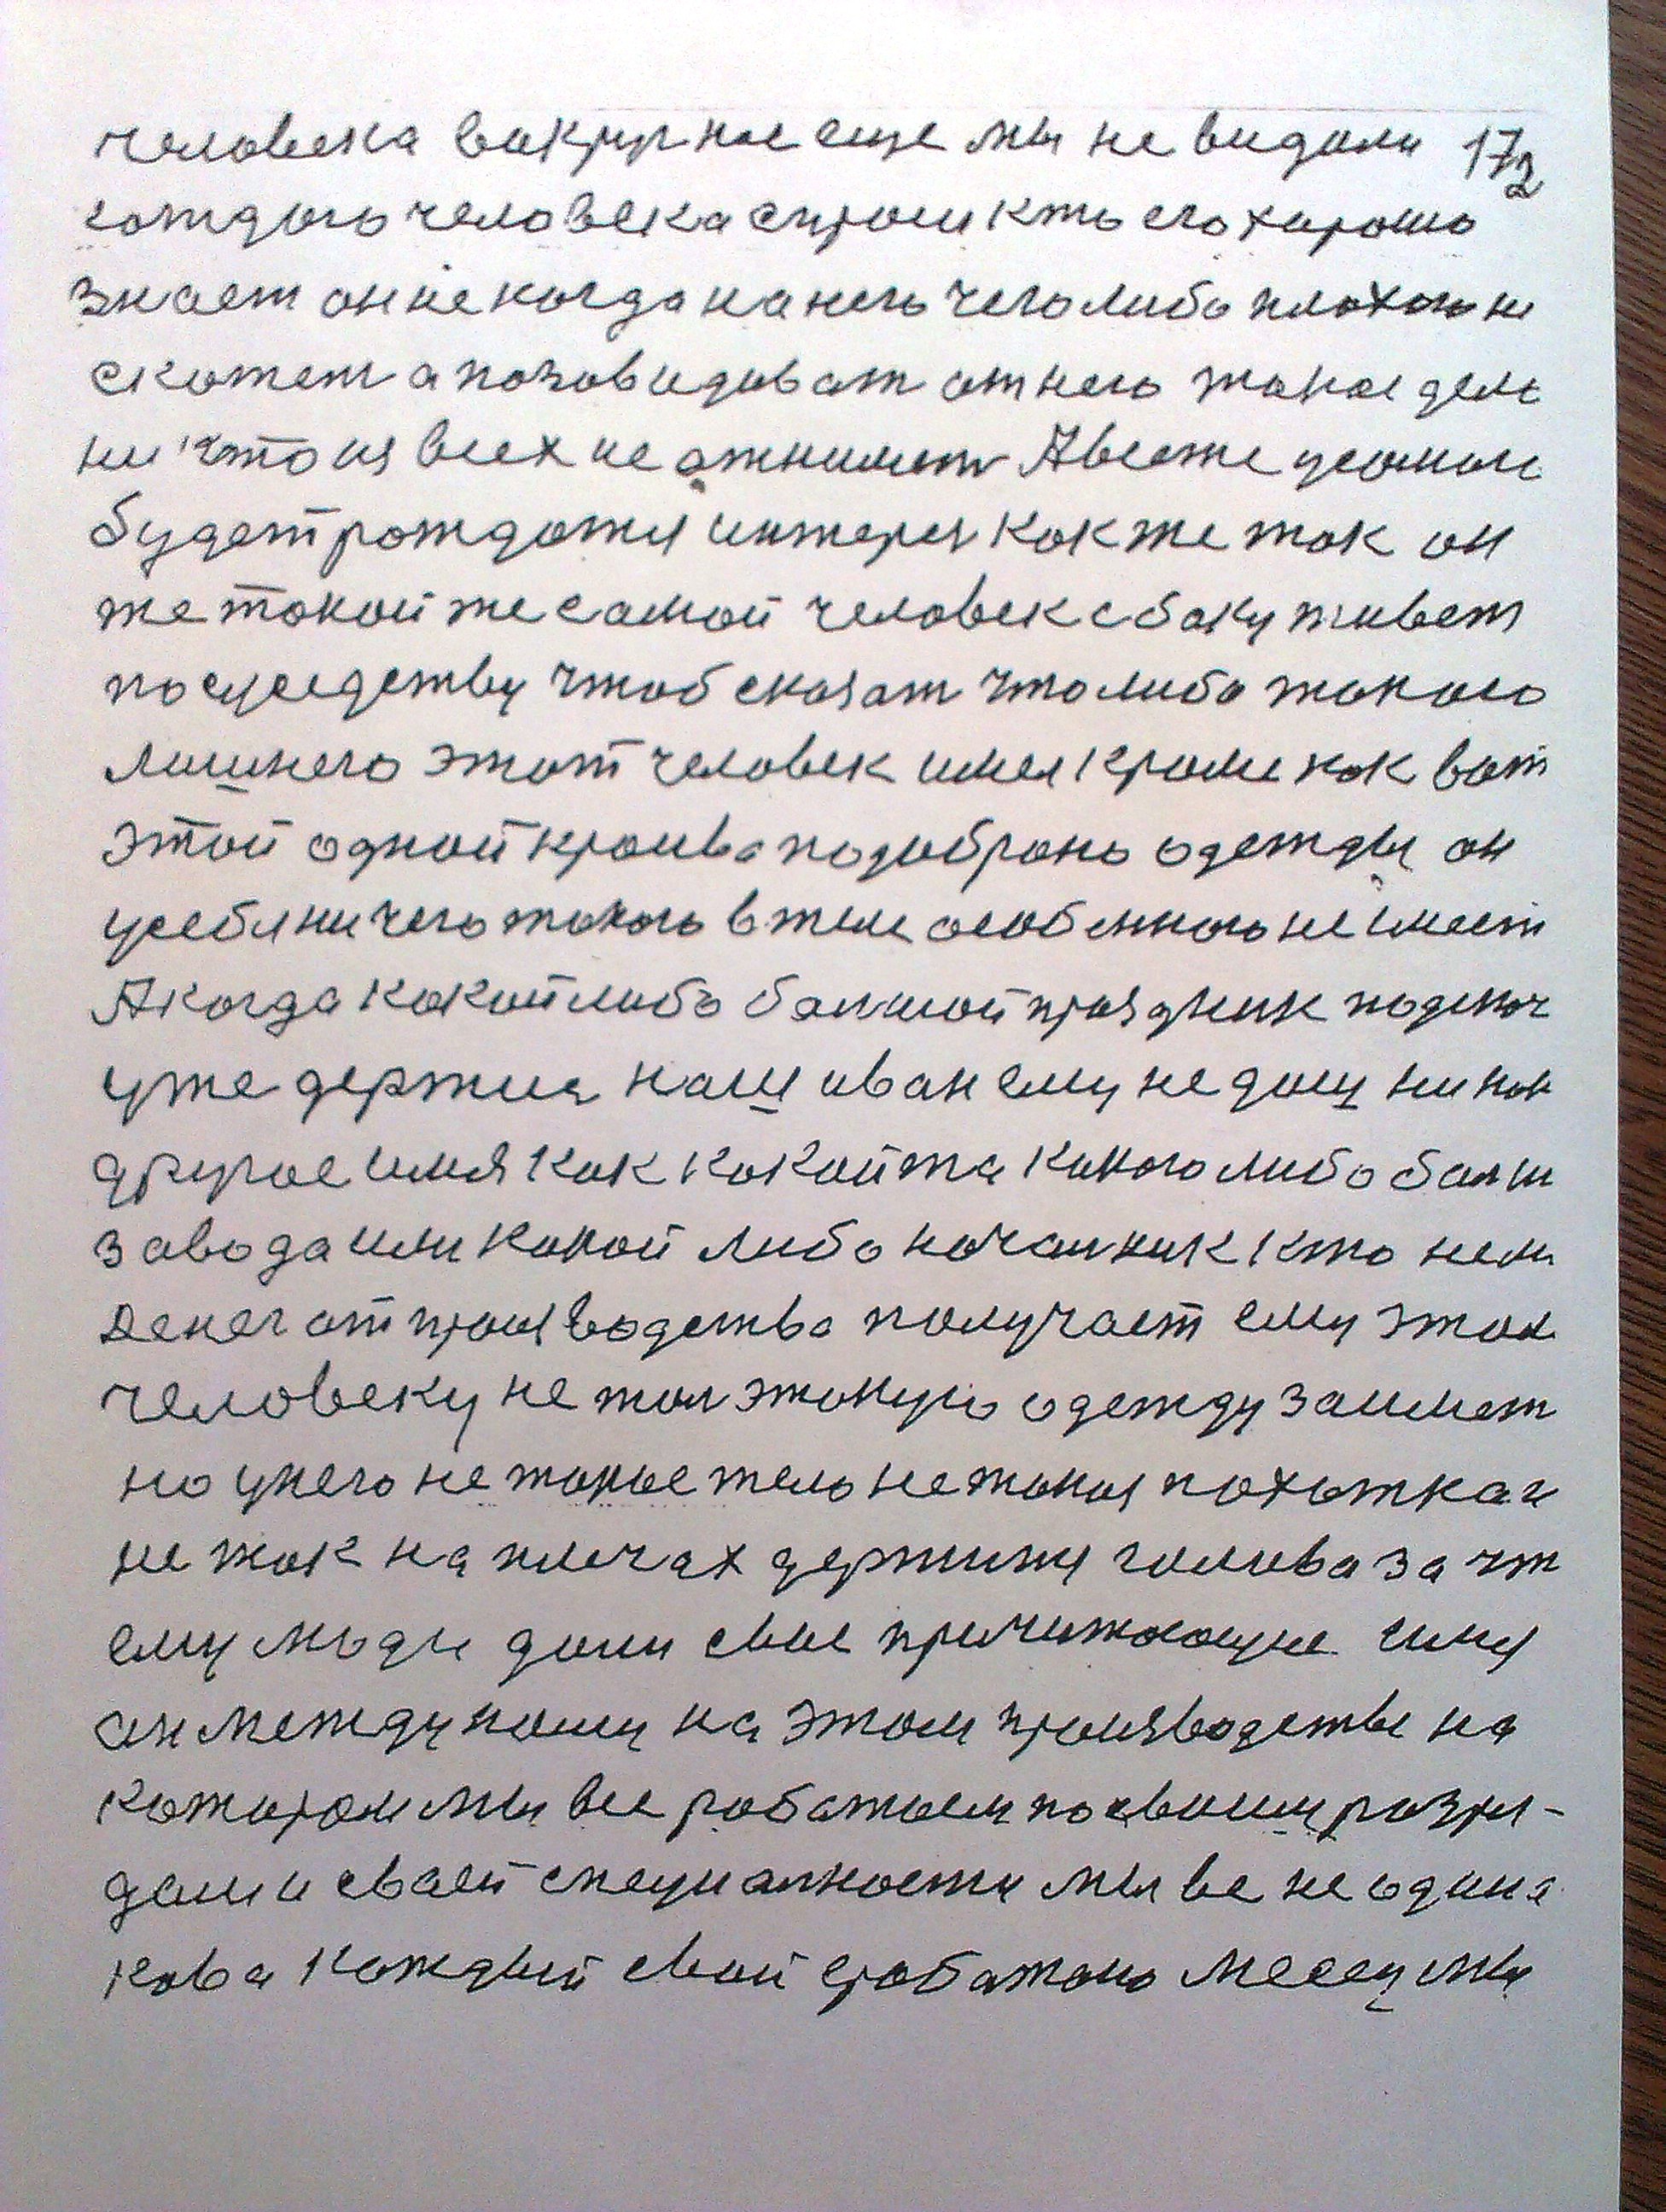 человека вакруг нас еще мы не видали 172
кождого человека спроси кто его харошо
знает он не когда на него чего либо плохого не
скожет а позавидоват от него такое дело
ни что из всех не отнимет А все же у самом
будет рождатся интерес Как же так он
же такой же самой человек с баку живет
по суседству чтоб сказат что либо такого
лишнего этот человек имел кроме как вот
этой одной красива подобрано одежды он
у себя ничего такого в теле особенного не имеет
А когда какой либо балшой праздник
уже держися наш иван ему не дош ни как
другое имя Как какой та какого либо балш
завода или какой либо началник кто нем
Денег от производства получает ему этом
человеку не тол этакую одежду заимет
но у него не такое тело не такая похотка и
не так на плечах держится голова за чт
ему люди дали свое причитающие имя
он между нами на этом производстве на
котором мы все работаем по своим разря-
дам и сваей специалности мы все не одина
кова Каждый свой работаю месец мы